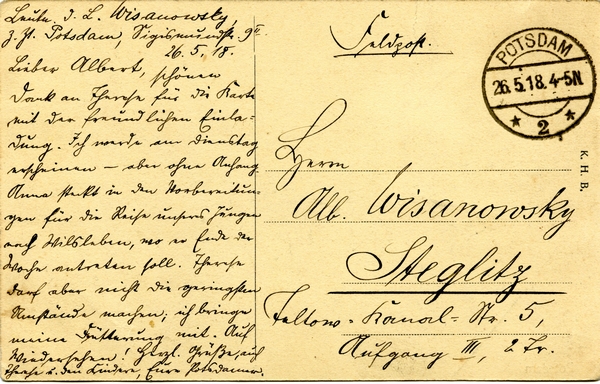 Leutn. d. L. Wisanowsky,
z. Zt. Potsdam, Sigismundstr. 9 II
26. 5. 18.
Lieber Albert, schönen
Dank an Therese für die Karte
mit der freundlichen Einla-
dung. Ich werde am Dienstag
erscheinen – aber ohne Anhang.
Anna steckt in den Vorbereitun-
gen für die Reise unsers Jungen
nach Wilsleben, wo er Ende der
Woche antreten soll. Therese
darf aber nicht die geringsten
Umstände machen; ich bringe
meine Fütterung mit. Auf
Wiedersehen! Herzl. Grüße, auch
Therese u. den Kindern, Eure Potsdamer.
Feldpost.
POTSDAM
26.5.18. 4-5N
* 2 *
Herrn
Alb. Wisanowsky
Steglitz
Teltow-Kanal-Str. 5,
Aufgang III, 2 Tr.
K. H. B.